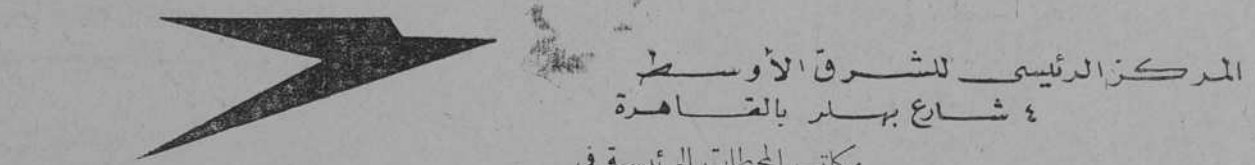 المركز الرئيسى للشرق الأوسط
٤ شارع بهلر بالقاهرة
مكاتب المحطات الرئيسية فى